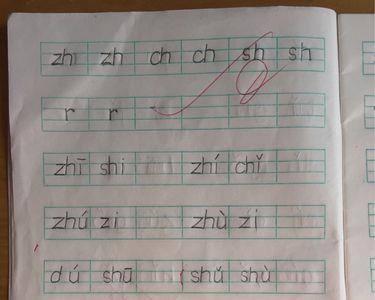 zhi zh ch ch sh sh
r r
zhī shi zhí chǐ
zhú zi zhù zi
dú shū shǔ shù